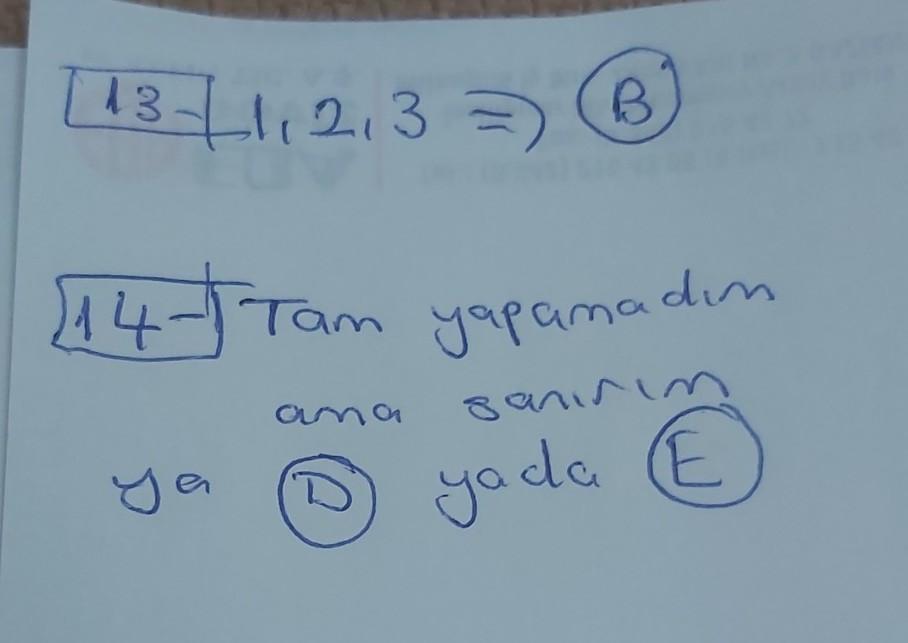 13- 1, 2, 3 => B
14- Tam yapamadım
ama sanırım
ya D yada E